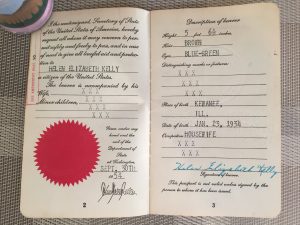 I the undersigned, Secretary of State
of the United States of America, hereby
request all whom it may concern to per-
mit safely and freely to pass, and in case
of need to give all lawful aid and protec-
tion to
HELEN ELIZABETH KELLY
a citizen of the United States.
The bearer is accompanied by his
Wife, X X X
Minor children, X X X
X X X
X X X
Given under my
hand and the
seal of the
Department of
State
at Washington,
SEPT. 30TH
1954
2
Description of bearer
Height 5 feet inches
Hair BROWN
Eyes BLUE-GREEN
Distinguishing marks or features:
X X X
X X X
X X X
Place of birth KEWANEE,
ILL.
Date of birth JAN. 23, 1934
Occupation HOUSEWIFE
X X X
Helen Elizabeth Kelly
Signature of bearer
This passport is not valid unless signed by the
person to whom it has been issued.
3